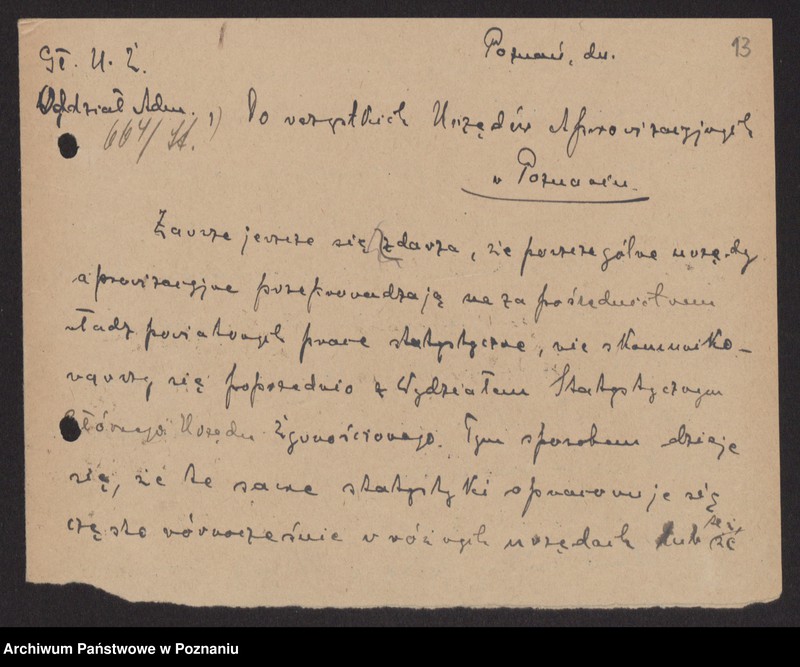 Poznań, dn. 13
Gł. U. Ż.
Wydział Adm. 1) Do wszystkich Urzędów Aprowizacyjnych
664/St.
w Poznaniu.
Zawsze jeszcze się zdarza, że poszczególne urzędy
aprowizacyjne przeprowadzają za pośrednictwem
władz powiatowych prace statystyczne, nie skomuniko-
wawszy się poprzednio z Wydziałem Statystycznym
Głównego Urzędu Żywnościowego. Tym sposobem dzieje
się, że te same statystyki opracowuje się
często równocześnie w różnych urzędach lub też
że
Archiwum Państwowe w Poznaniu